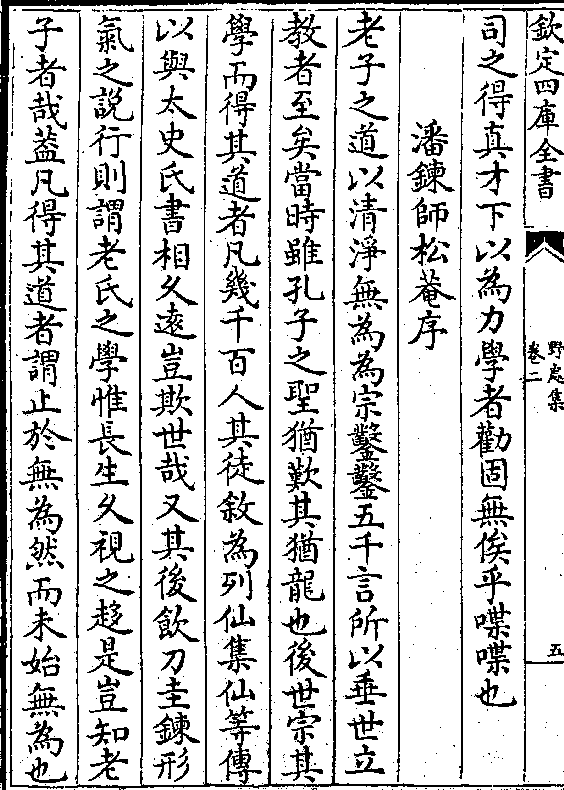 欽定四庫全書
野處集
卷二
五
司之得真才下以為力學者勸固無俟乎喋喋也
潘鍊師松菴序
老子之道以清淨無為為宗鑿鑿五千言所以垂世立
教者至矣當時雖孔子之聖猶歎其猶龍也後世宗其
學而得其道者凡幾千百人其徒敘為列仙集仙等傳
以與太史氏書相久遠豈欺世哉又其後飲刀圭鍊形
氣之説行則謂老氏之學惟長生久視之趍是豈知老
子者哉葢凡得其道者謂止於無為然而未始無為也